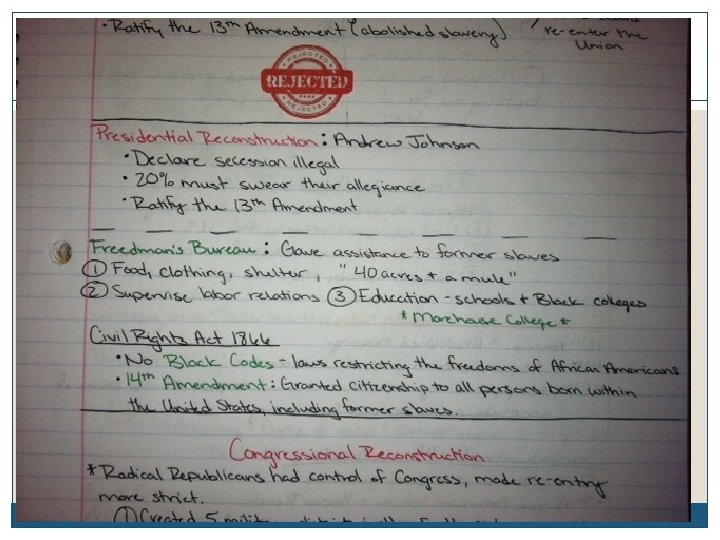 • Ratify the 13th Amendment (abolished slavery)
re-enter the
Union
REJECTED
REJECTED
REJECTED
Presidential Reconstruction: Andrew Johnson
• Declare secession illegal
• 20% must swear their allegiance
• Ratify the 13th Amendment
Freedman's Bureau: Gave assistance to former slaves
① Food, clothing, shelter, "40 acres + a mule"
② Supervise labor relations ③ Education - schools + Black colleges
* Morehouse College *
Civil Rights Act 1866
• No Black Codes - laws restricting the freedoms of African Americans
• 14th Amendment: Granted citizenship to all persons born within
the United States, including former slaves.
Congressional Reconstruction
* Radical Republicans had control of Congress, made re-entry
more strict.
① Created 5